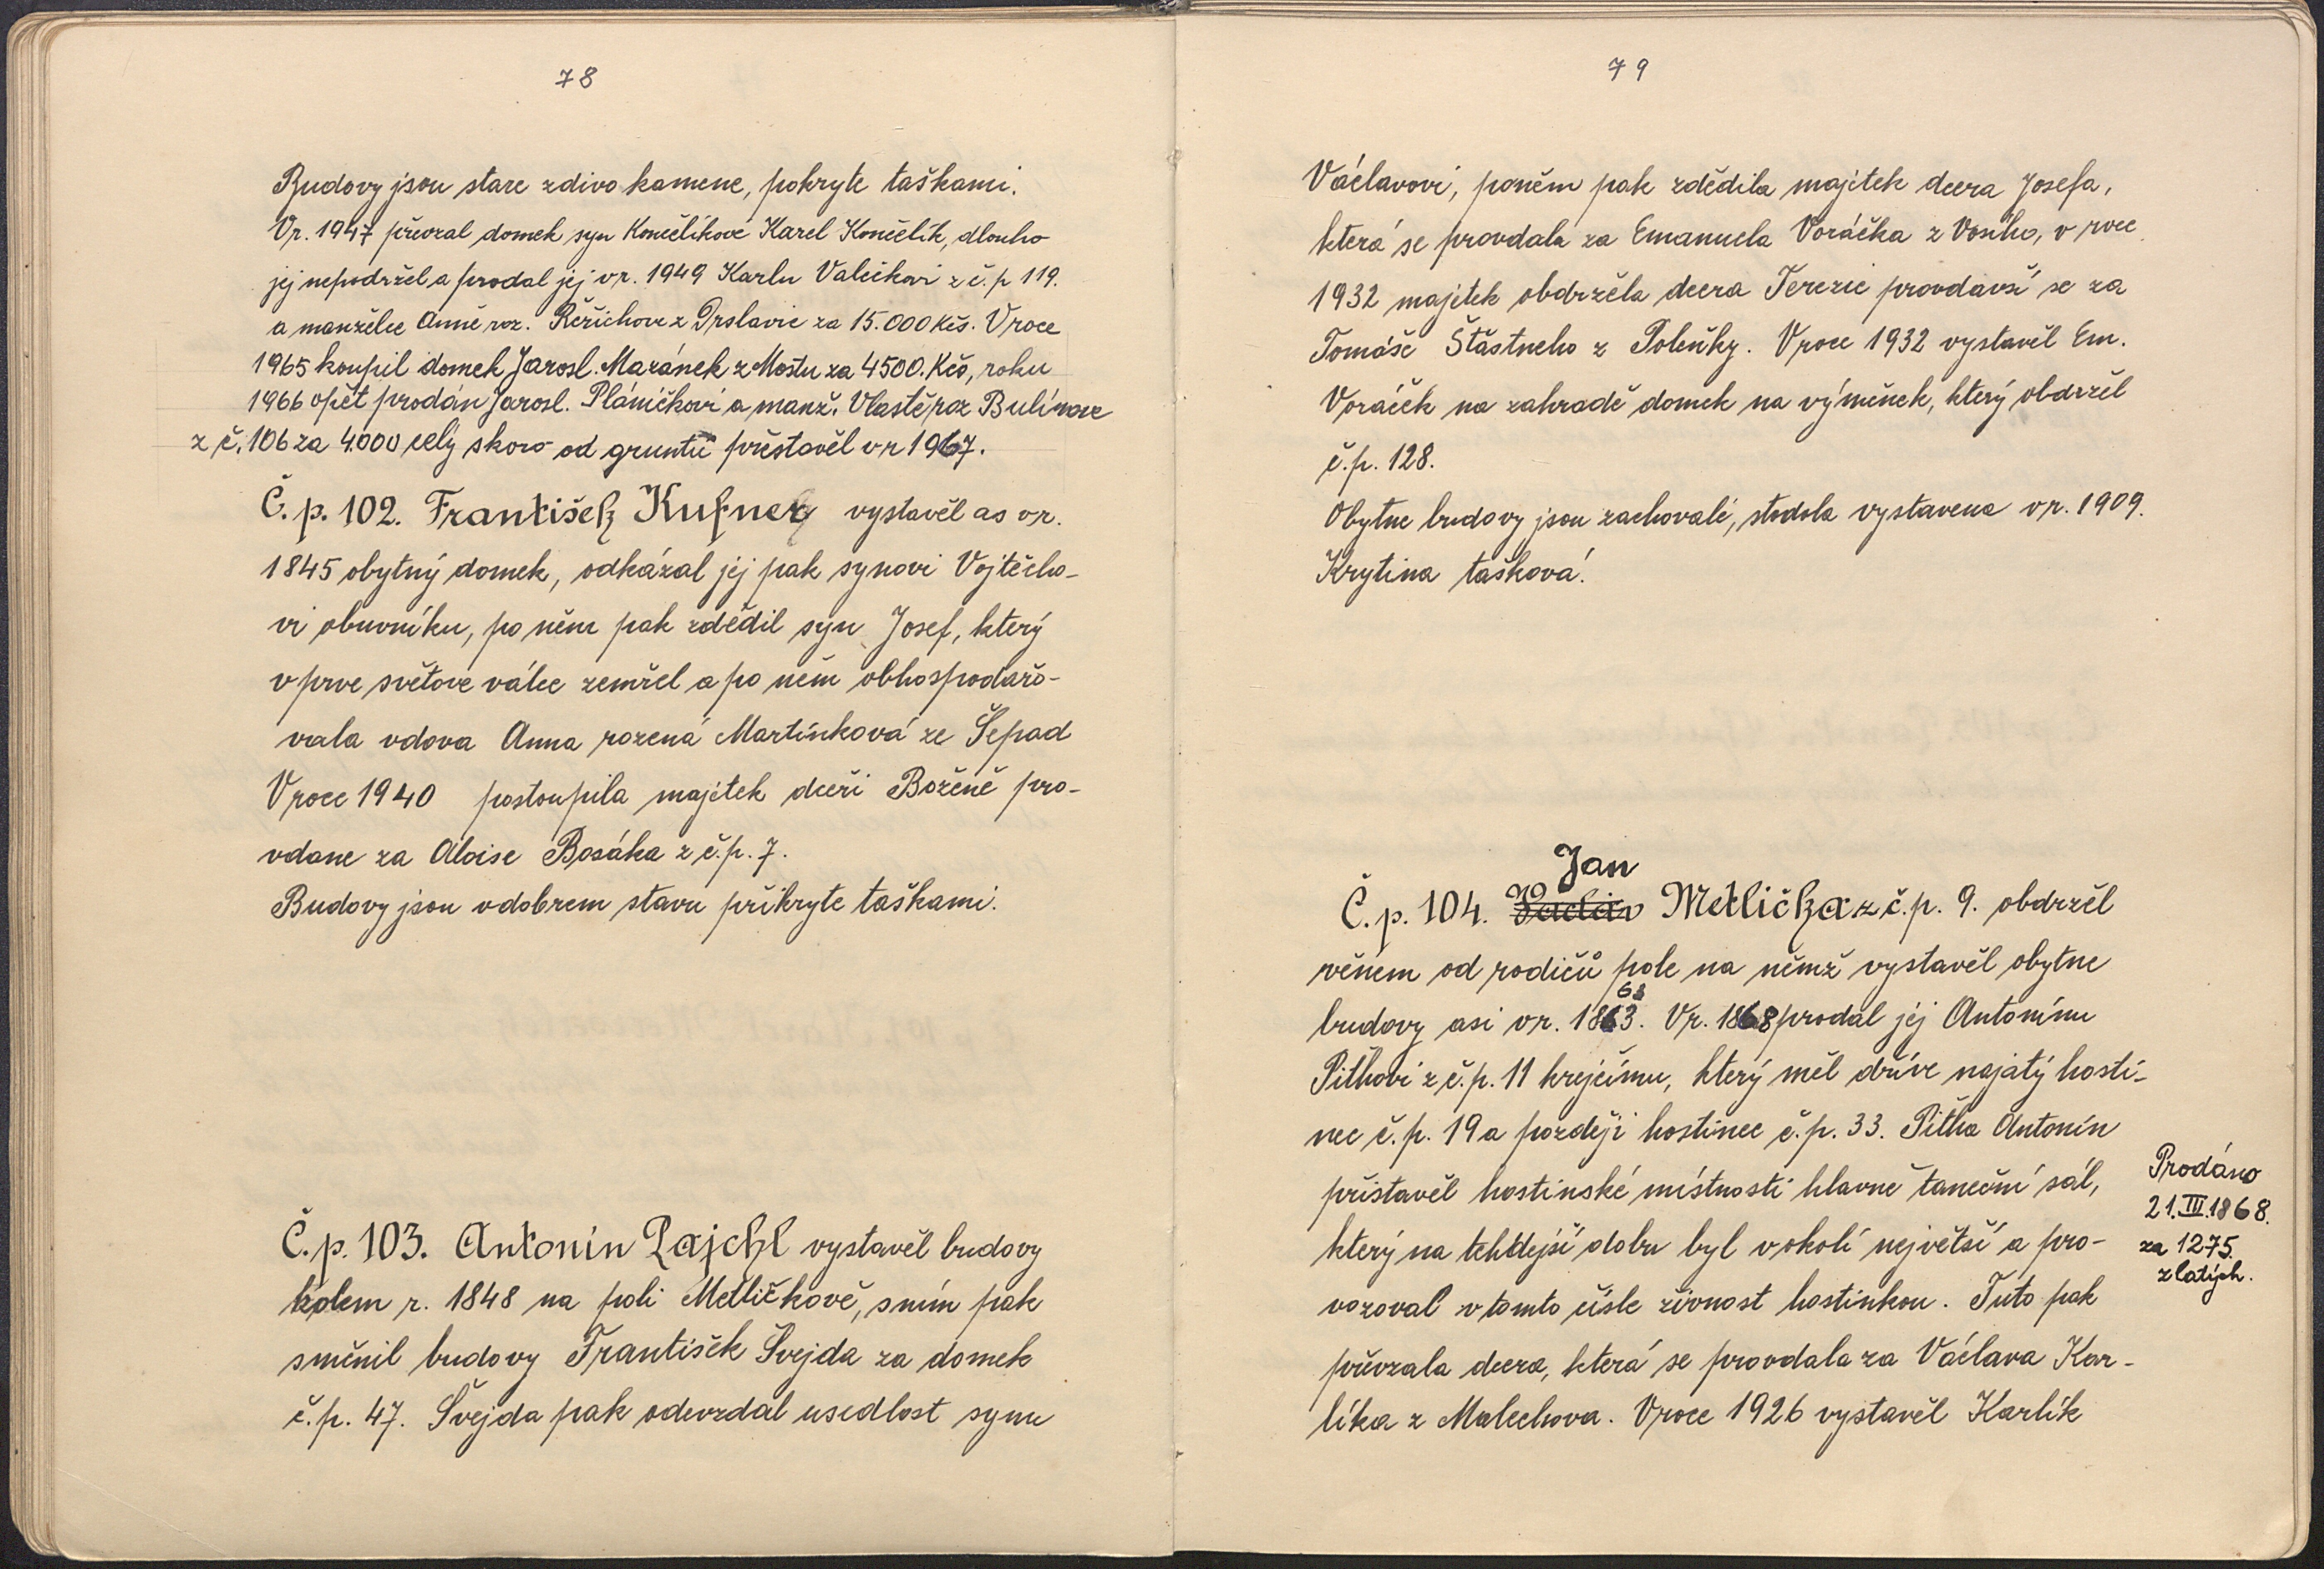 78
Budovy jsou stare zdivo kamene, pokryte taškami.
Vr. 1947 převzal domek syn Končelíkové Karel Končelík, dlouho
jej nepodržel a prodal jej vr. 1949 Karlu Valečkovi z č.p 119.
a manželce Anně roz. Řeřichove z Drslavic za 15.000 Kčs. Vroce
1965 koupil domek Jarosl. Mazánek z Mostu za 4500. Kčs, roku
1966 opět prodán Jarosl. Pláničkovi a manž. Vlastě roz Bulínove
z č. 106 za 4.000 celý skoro od gruntů přestavěl vr 1967.
Č. p. 102. František Kufner vystavěl as vr.
1845 obytný domek, odkázal jej pak synovi Vojtěcho-
vi obuvníku, po něm pak zdědil syn Josef, který
v prve světove válce zemřel a po něm obhospodařo-
vala vdova Anna rozená Martínková ze Šepad
Vroce 1940 postoupila majetek dceři Boženě pro-
vdane za Aloise Bosáka z č.p. 7.
Budovy jsou vdobrem stavu přikryte taškami.
Č. p. 103. Antonín Rajchl vystavěl budovy
kolem r. 1848 na poli Metličkově, sním pak
směnil budovy František Švejda za domek
č.p. 47. Švejda pak odevzdal usedlost synu
79
Václavovi, poněm pak zdědila majetek dcera Josefa,
která se provdala za Emanuela Voráčka z Vosího, v roce
1932 majetek obdržela dcera Terezie provdavší se za
Tomáše Šťastneho z Poleňky. Vroce 1932 vystavěl Em.
Voráček na zahradě domek na výměnek, který obdržel
č.p. 128.
Obytne budovy jsou zachovalé, stodola vystavena vr. 1909.
Krytina tašková.
Jan
Č. p. 104. Václav Metlička z č.p. 9. obdržel
věnem od rodičů pole na němž vystavěl obytne
63
budovy asi vr. 1863. Vr. 1868 prodal jej Antonínu
Pithovi z č.p. 11 krejčímu, který měl dříve najatý hosti-
nec č.p. 19 a později hostinec č.p. 33. Pitha Antonín
přistavěl hostinské místnosti hlavně taneční sál,
který na tehdejší dobu byl vokolí největší a pro-
vozoval v tomto čísle živnost hostinkou. Tuto pak
převzala dcera, která se provdala za Václava Kar-
líka z Malechova. Vroce 1926 vystavěl Karlík
Prodáno
21.III.1868.
za 1275.
zlatých.